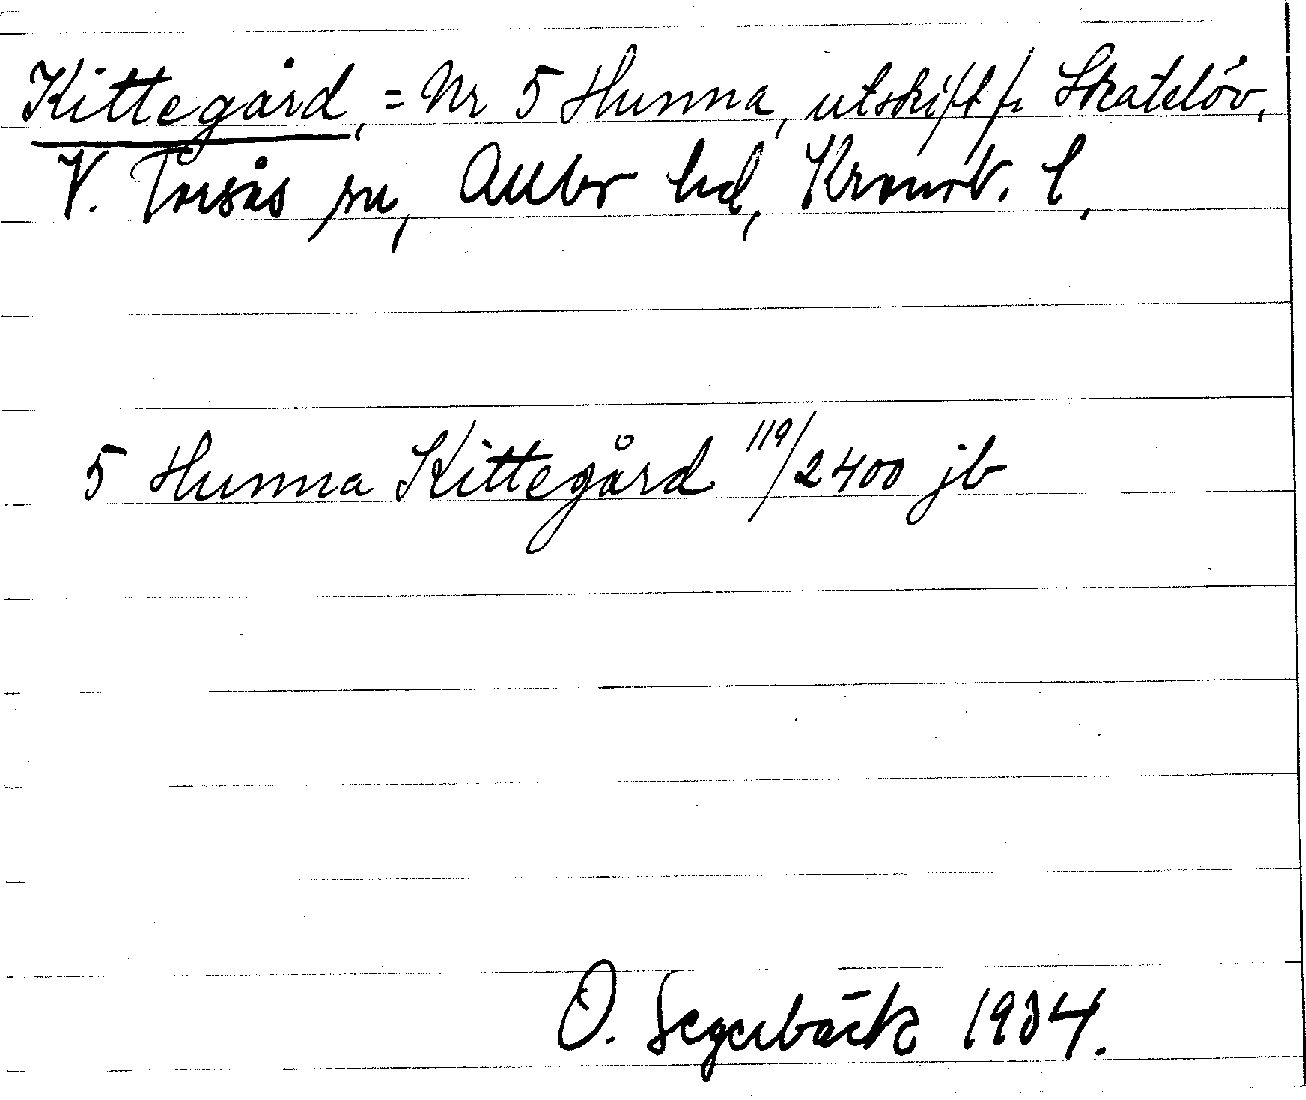 Kittegård, = Nr 5 Hunna, utskift fr Skatelöv,
V. Torsås sn, Allbo hd, Kronob. l,
5 Hunna Kittegård 119/2400 jb
O. Segerbäck 1934.